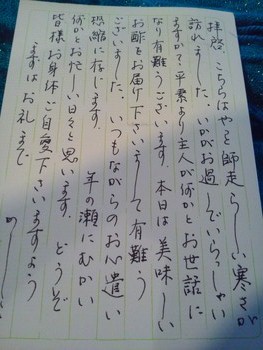 拝啓 こちらはやっと師走らしい寒さが
訪れました。いかがお過しでいらっしゃい
ますか？平素より主人が何かとお世話に
なり有難うございます。本日は美味しい
お酢をお届け下さいまして有難う
ございました。いつもながらのお心遣い
恐縮に存じます。年の瀬にむかい
何かとお忙しい日々と思います。どうぞ
皆様お身体ご自愛下さいますよう
まずはお礼まで かしこ